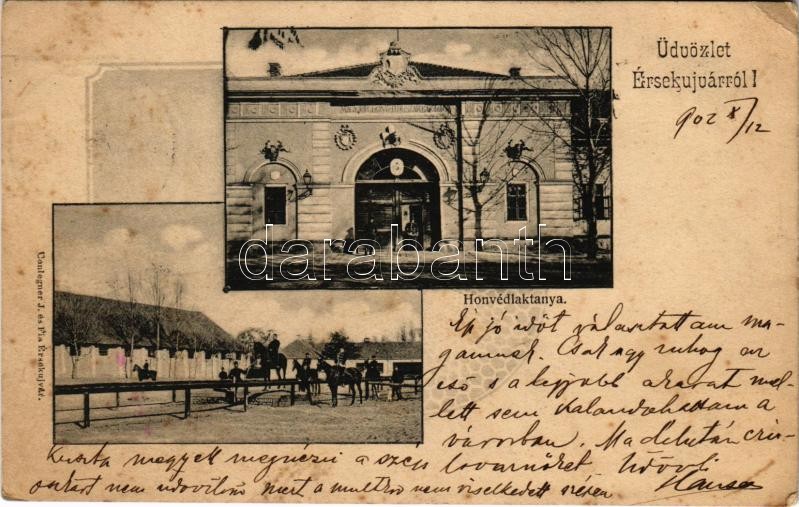 Üdvözlet
Érsekujvárról!
902 X/12
darabanth
Honvédlaktanya.
Conlegner J. és Fia Érsekujvár.
Ép jó időt választottam ma-
gamnak. Csak ugy zuhog az
eső s a legjobb akarat mel-
lett sem kalandozhattam a
városban. Ma délután
megyek megnézni a szép lovarnőket. Üdvözli
nem üdvözlöm mert a multkor nem viselkedett szépen